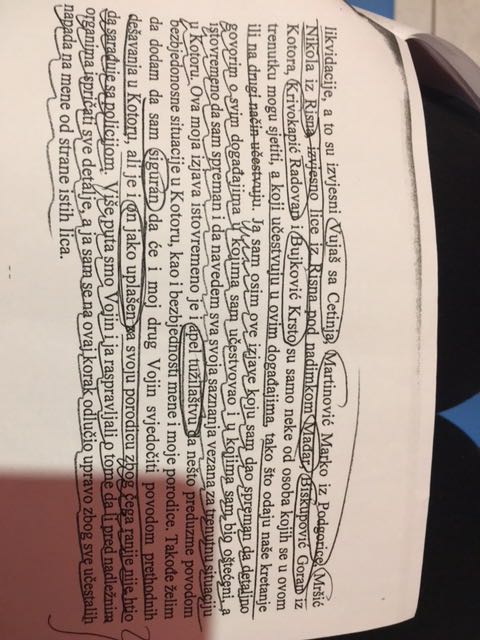 likvidacije, a to su izvjesni Vujaš sa Cetinja, Martinović Marko iz Podgorice, Mršić
Nikola iz Risna, izvjesno lice iz Risna pod nadimkom Mađar, Biskupović Goran iz
Kotora, Krivokapić Radovan i Bujković Krsto su samo neke od osoba kojih se u ovom
trenutku mogu sjetiti, a koji učestvuju u ovim događajima, tako što odaju naše kretanje
ili na drugi način učestvuju. Ja sam osim ove izjave koju sam dao spreman da detaljno
govorim o svim događajima u kojima sam učestvovao i u kojima sam bio oštećeni, a
istovremeno da sam spreman i da navedem sva svoja saznanja vezana za trenutnu situaciju
u Kotoru. Ova moja izjava istovremeno je i apel tužilaštvu da nešto preduzme povodom
bezbjedonosne situacije u Kotoru, kao i bezbjednosti mene i moje porodice. Takođe želim
da dodam da sam siguran da će i moj drug Vojin svjedočiti povodom prethodnih
dešavanja u Kotoru, ali je i on jako uplašen za svoju porodicu zbog čega ranije nije htio
da sarađuje sa policijom. Više puta smo Vojin i ja raspravljali o tome da li pred nadležnim
organima ispričati sve detalje, a ja sam se na ovaj korak odlučio upravo zbog sve učestalih
napada na mene od strane istih lica.